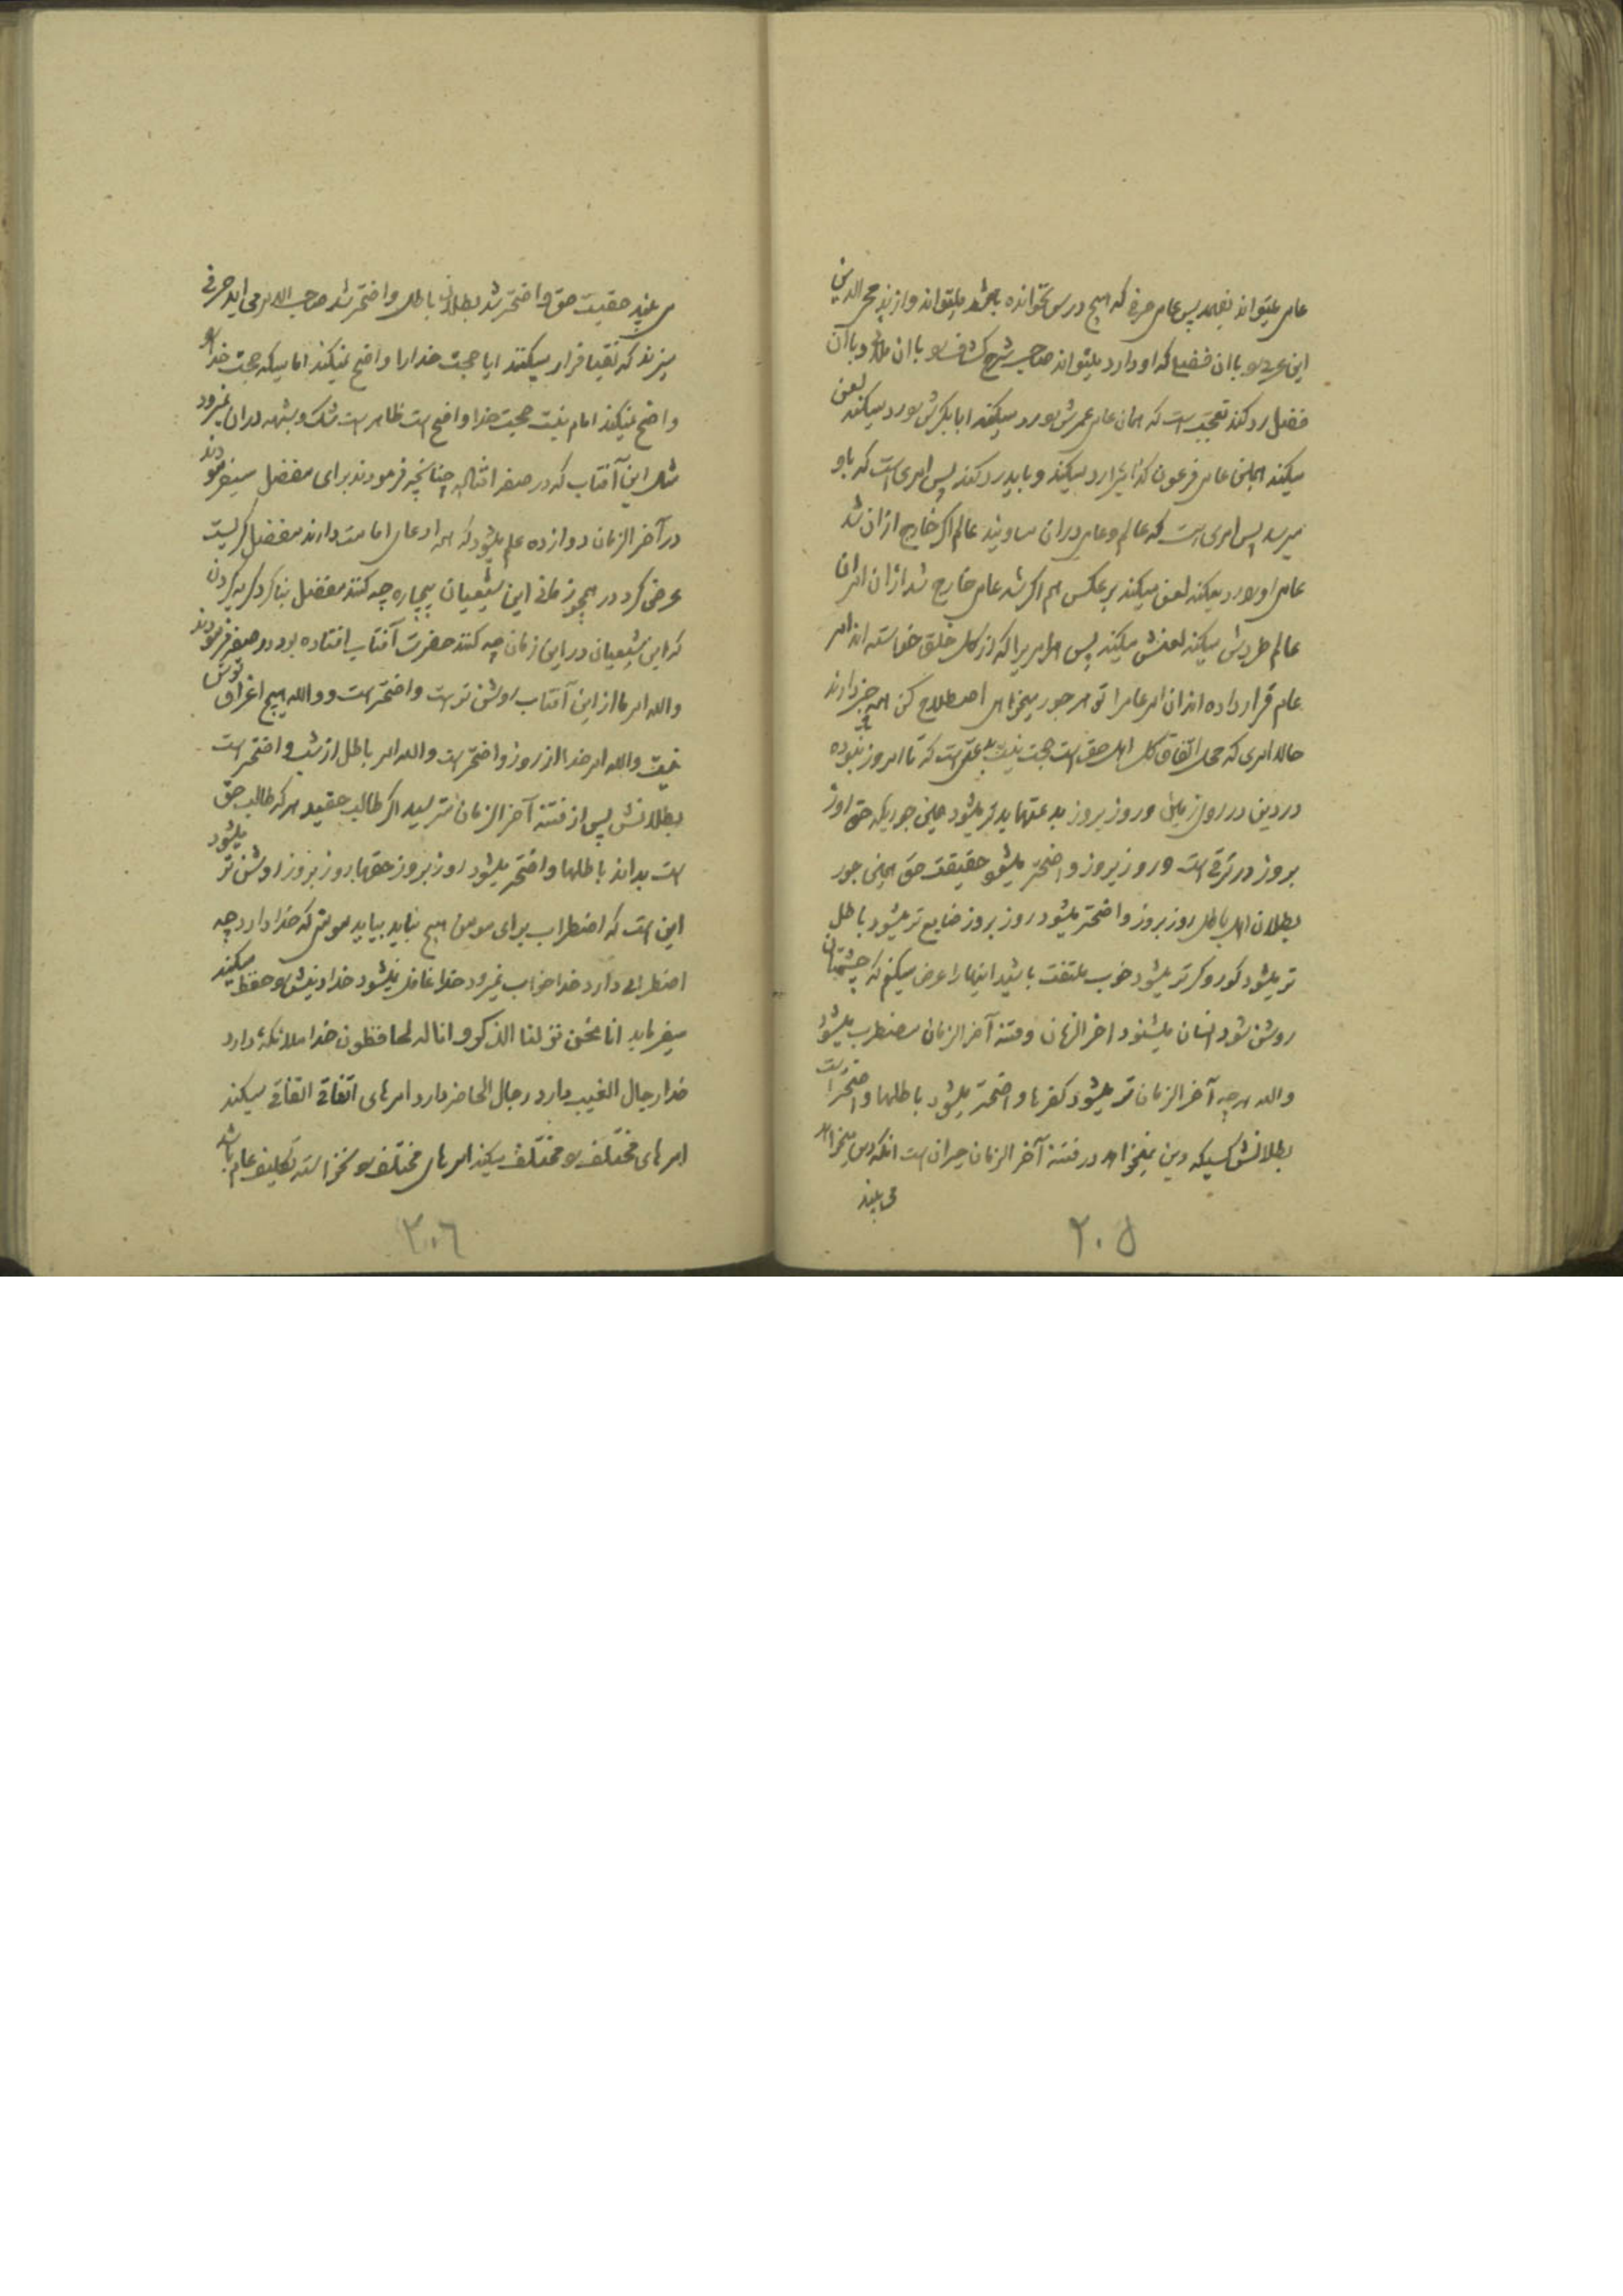 عامی میتواند بفهمد پس عامی صرفی که هیچ درس نخوانده باشد میتواند وازند محی الدین
این عربی را با ان فضلی که او دارد میتواند صاحب شرح کشاف را با ان ملائی و با آن
فضل رد کند تعجب است که همان عامی عمرش را رد میکند ابابکرش را رد میکند لعن
میکند همچنین عامی فرعون کذائی را رد میکند و باید رد کند پس امری است که باو
میرسد پس امری است که عالم و عامی در ان مساویند عالم اگر خارج از ان شد
عامی او را رد میکند لعن میکند بر عکس هم اگر شد عامی خارج شد از ان امر ان
عالم طردش میکند لعنش میکند پس هر امریرا که از کل خلق خواسته اند امر
عام قرار داده اند ان امر عام را تو هر جور میخواهی اصطلاح کن همه خبر دارند
حالا امری که محل اتفاق کل اهل حق است حجت نیست بدعتی است که تا امروز نبوده
در دین در روی زمین و روز بروز بدعتها بدتر میشود همین جوریکه حق روز
بروز در ترقی است و روز بروز واضحتر میشود حقیقت حق همین جور
بطلان اهل باطل روز بروز واضحتر میشود روز بروز ضایع تر میشود باطل
تر میشود کور و کرتر میشود خوب ملتفت باشید اینها را عرض میکنم که چشمتان
روشن شود انسان میشنود اخر الزمان و فتنه آخر الزمان مضطرب میشود
والله هر چه آخر الزمان تر میشود کفرها واضحتر میشود باطلها واضحتر است
بطلانش کسیکه دین نمیخواهد در فتنه آخر الزمان حیران است انکه دین میخواهد
می بیند
۲۰۵
می بیند حقیت حق واضحتر شد بطلان باطل واضحتر شد صاحب الامر می اید حرفی
میزند که نقبا فرار میکنند ایا حجت خدا را واضح نمیکند امامیکه حجت خدا را
واضح نمیکند امام نیست حجت خدا واضح است ظاهر است شک و شبهه در ان نمیرود
مثل این آفتاب که در صفه افتاده چنانچه فرمودند برای مفضل میفرمودند
در آخر الزمان دوازده علم میشود که همه ادعای امامت دارند مفضل گریست
عرض کرد در همچو زمانی این شیعیان بیچاره چه کنند مفضل بنا کرد گریه کردن
که این شیعیان در این زمان چه کنند حضرت آفتاب افتاده بود در صفه فرمودند
والله امر ما از این آفتاب روشن تر است واضحتر است و والله هیچ اغراق توش
نیست والله امر خدا از روز واضحتر است والله امر باطل از شب واضحتر است
بطلانش پس از فتنه آخر الزمان نترسید اگر طالب حقید هر که طالب حق
است بداند باطلها واضحتر میشود روز بروز حقها روز بروز روشن تر میشود
این است که اضطراب برای مومن هیچ نباید بیاید مومنی که خدا دارد چه
اضطرابی دارد خدا خواب نمیرود خدا غافل نمیشود خدا دینش را حفظ میکند
میفرماید انا نحن نزلنا الذکر و انا له لحافظون خدا ملائکه دارد
خدا رجال الغیب دارد رجال الحاضر دارد امرهای اتفاقی اتفاقی میکند
امرهای مختلف را مختلف میکند امرهای مختلف را نخواسته تکلیف عام باشد
۲۰۶